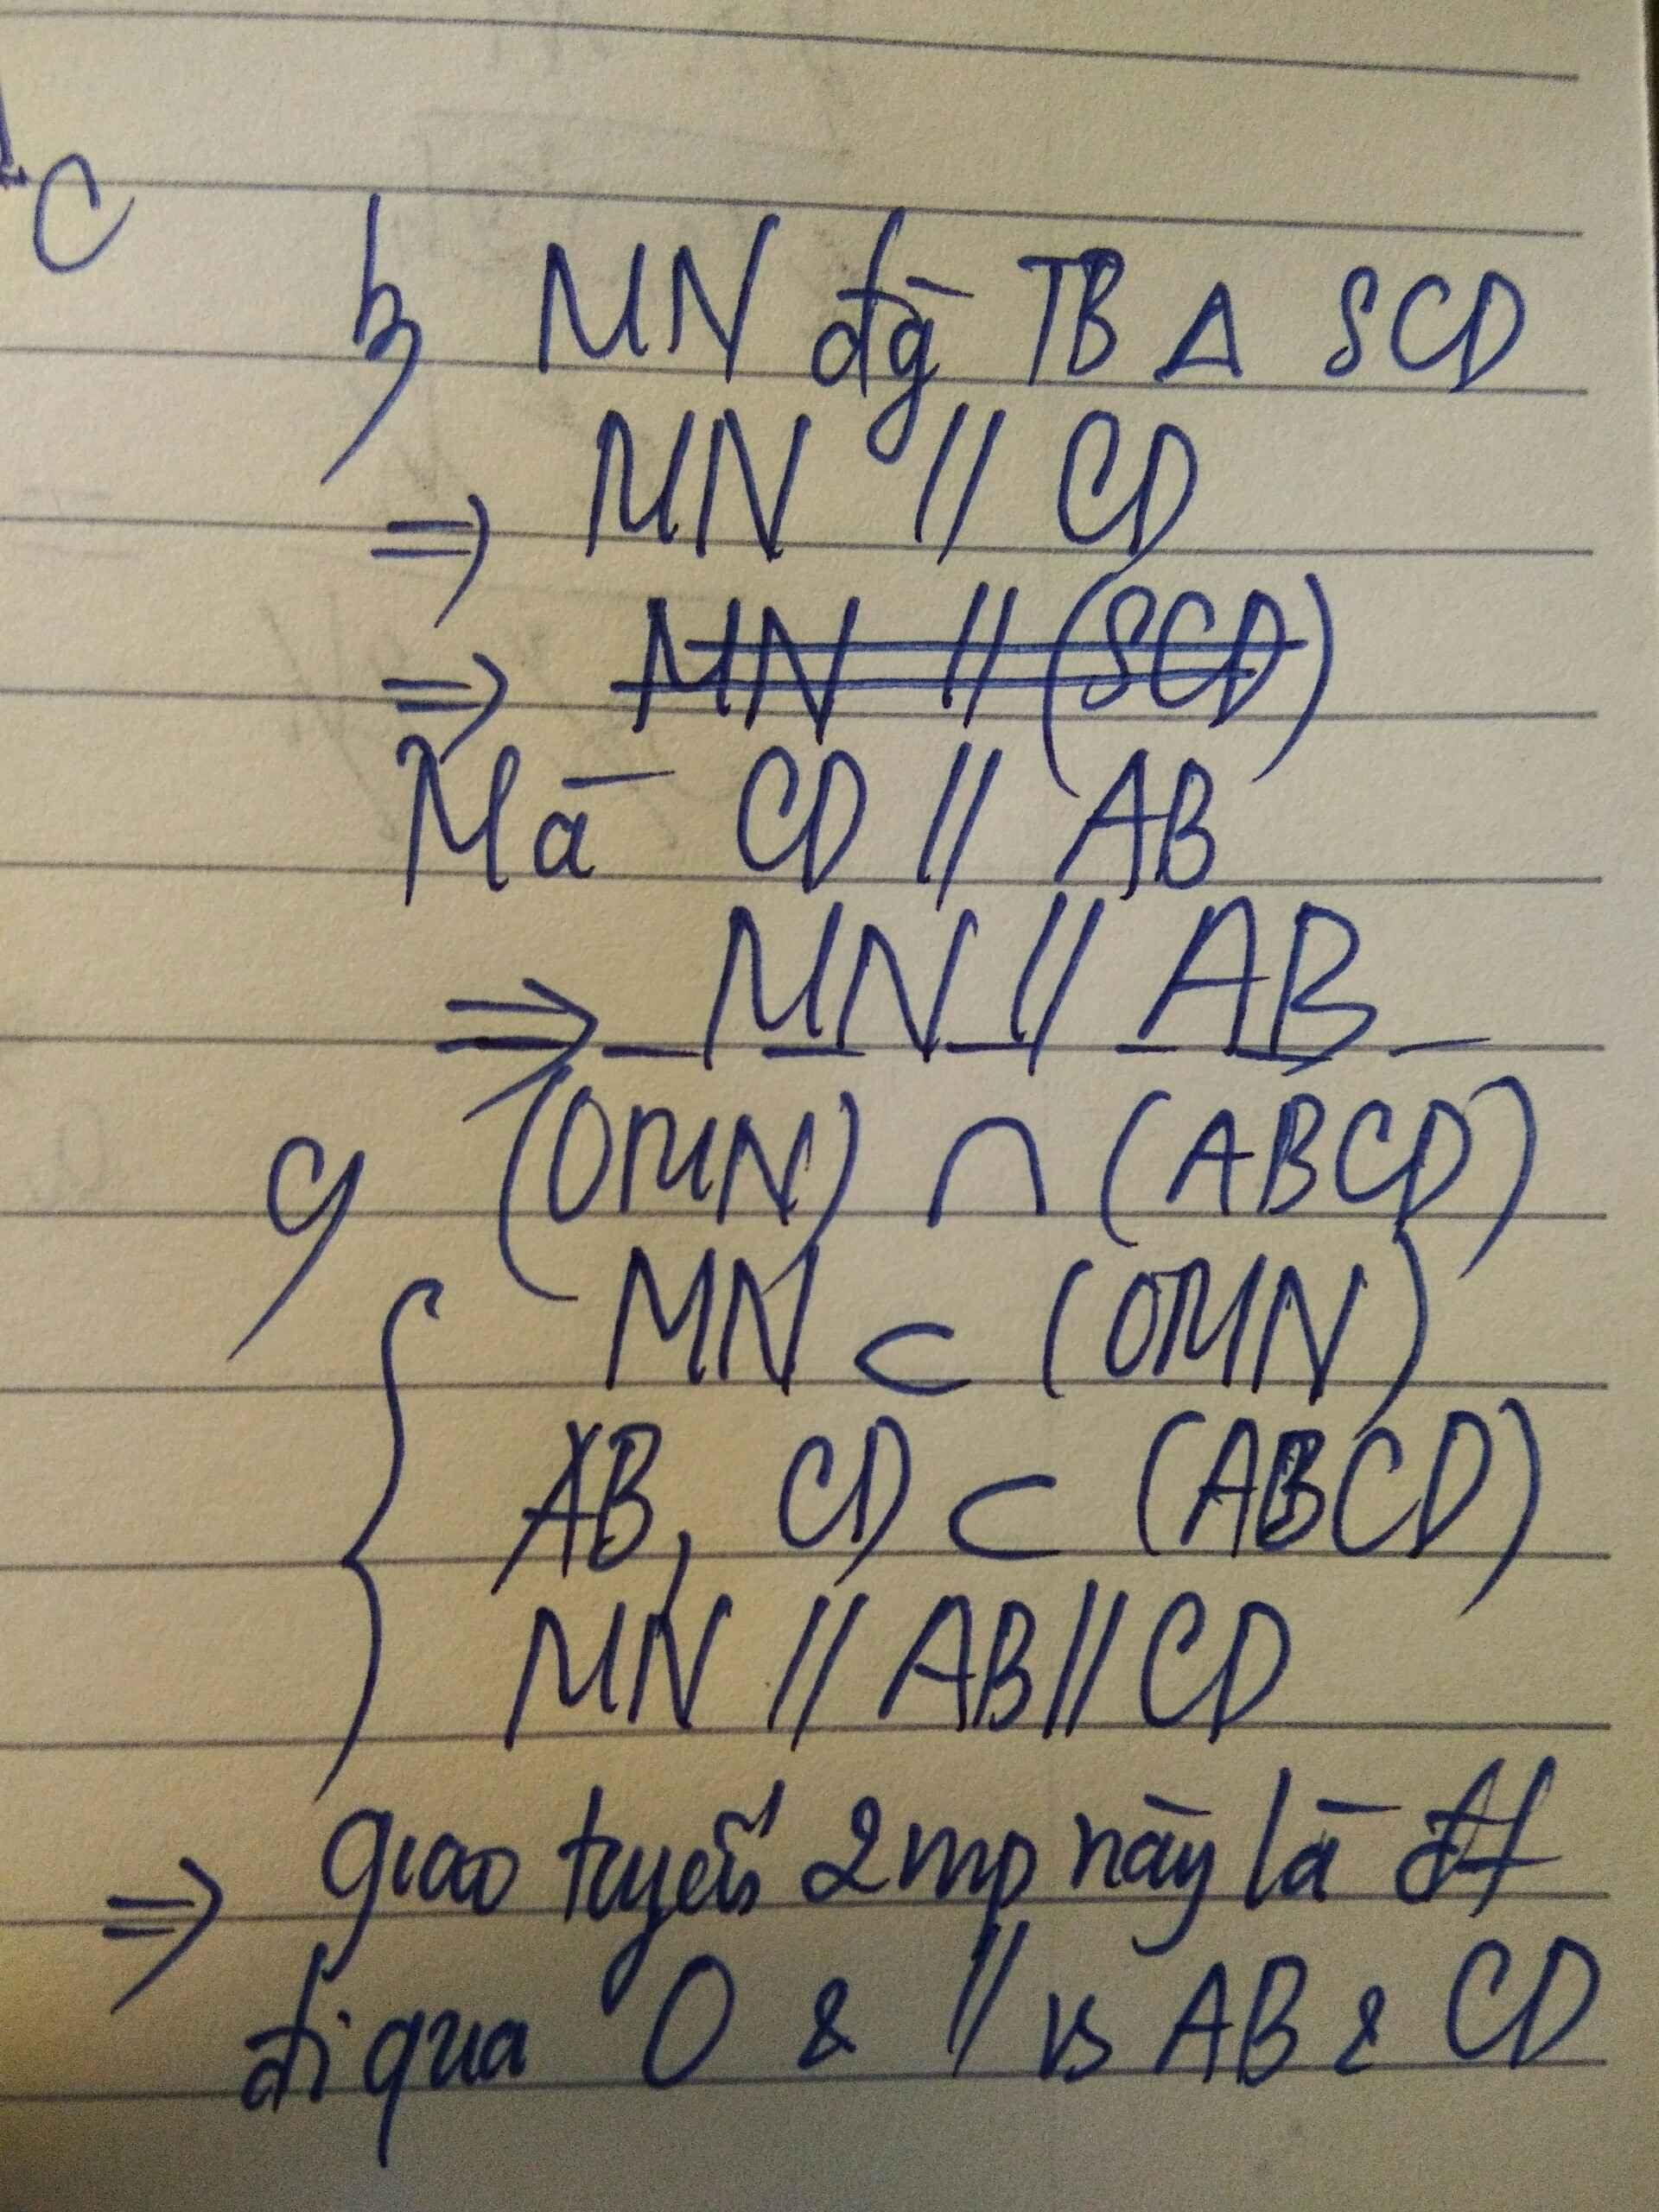 C
b, MN đg TB Δ SCD
⇒ MN // CD
⇒ MN // (SCD)
Mà CD // AB
⇒ MN // AB
c, (OMN) ∩ (ABCD)
MN ⊂ (OMN)
AB, CD ⊂ (ABCD)
MN // AB // CD
⇒ giao tuyến 2mp này là đt
đi qua O & // vs AB & CD